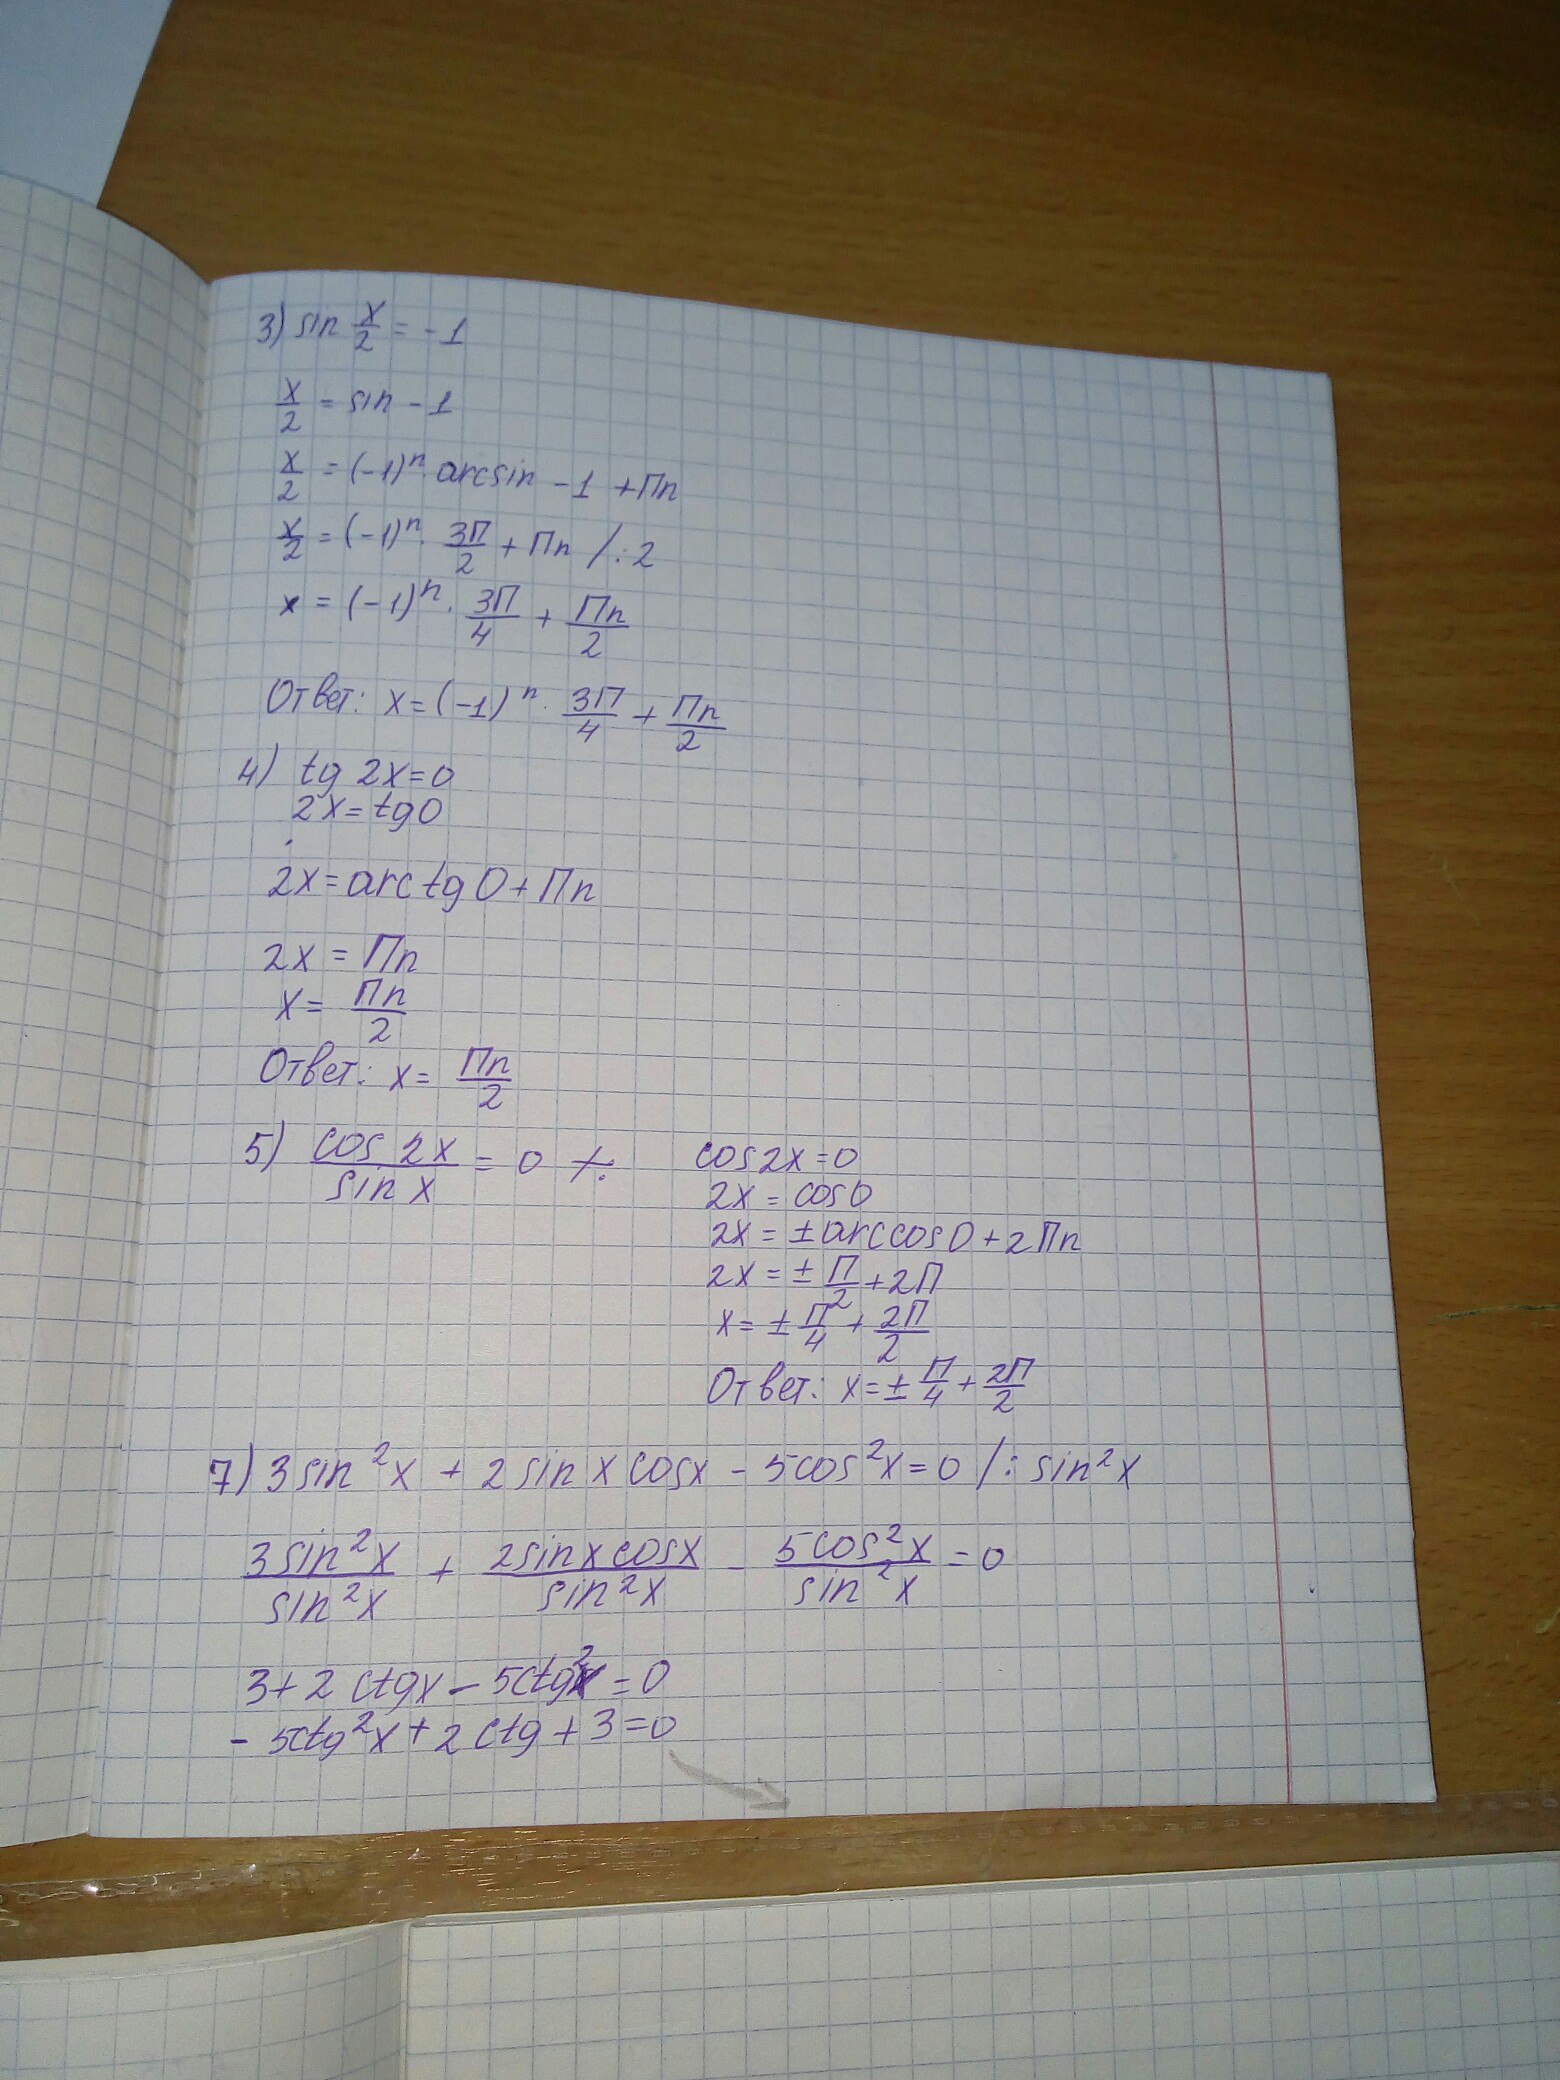 3) sin x/2 = -1
x/2 = sin - 1
x/2 = (-1)ⁿ · arcsin - 1 + Пn
x/2 = (-1)ⁿ · 3П/2 + Пn /:2
x = (-1)ⁿ · 3П/4 + Пn/2
Ответ: x = (-1)ⁿ · 3П/4 + Пn/2
4) tg 2x = 0
2x = tg 0
2x = arctg 0 + Пn
2x = Пn
x = Пn/2
Ответ: x = Пn/2
5) cos 2x / sin x = 0 /:
cos 2x = 0
2x = cos 0
2x = ± arccos 0 + 2Пn
2x = ± П/2 + 2П
x = ± П/4 + 2П/2
Ответ: x = ± П/4 + 2П/2
7) 3sin²x + 2sin x cos x - 5cos²x = 0 /: sin²x
3sin²x/sin²x + 2sin x cos x/sin²x - 5cos²x/sin²x = 0
3 + 2ctgx - 5ctg²x = 0
- 5ctg²x + 2ctg + 3 = 0